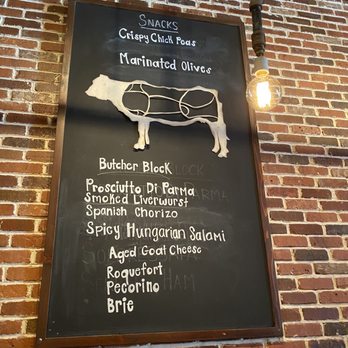 SNACKS
Crispy Chick Peas
Marinated Olives
Butcher Block
Prosciutto Di Parma
Smoked Liverwurst
Spanish Chorizo
Spicy Hungarian Salami
Aged Goat Cheese
Roquefort
Pecorino
Brie